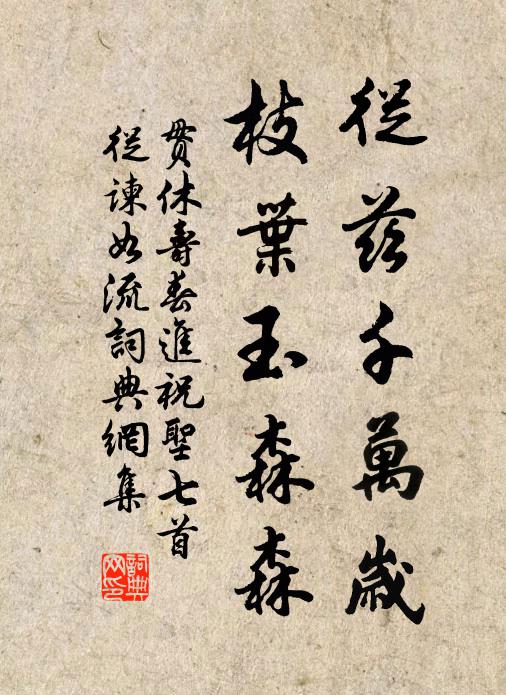 從茲千萬歲
枝葉玉森森
貫休壽春進祝聖七首
從諫如流詞典網集
詞典
网印